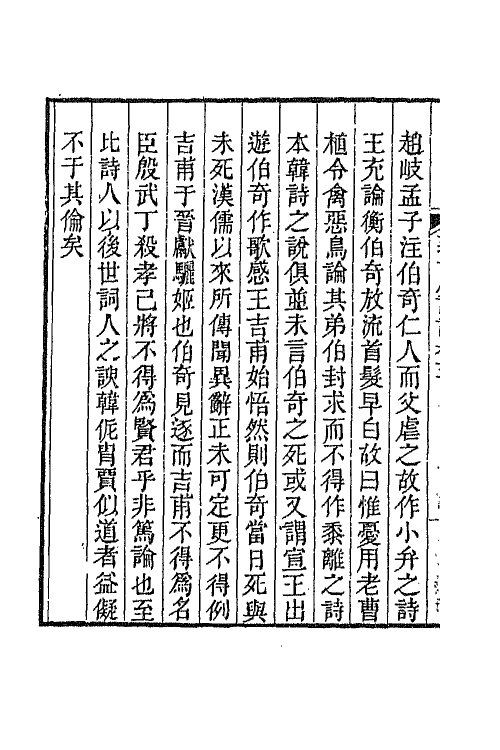 趙岐孟子注伯奇仁人而父虐之故作小弁之詩
王充論衡伯奇放流首髮早白故曰惟憂用老曹
植令禽惡鳥論其弟伯封求而不得作黍離之詩
本韓詩之說俱並未言伯奇之死或又謂宣王出
遊伯奇作歌感王吉甫始悟然則伯奇當日死與
未死漢儒以來所傳聞異辭正未可定更不得例
吉甫于晉獻驪姬也伯奇見逐而吉甫不得為名
臣殷武丁殺孝己將不得為賢君乎非篤論也至
比詩人以後世詞人之諛韓侂冑賈似道者益儗
不于其倫矣